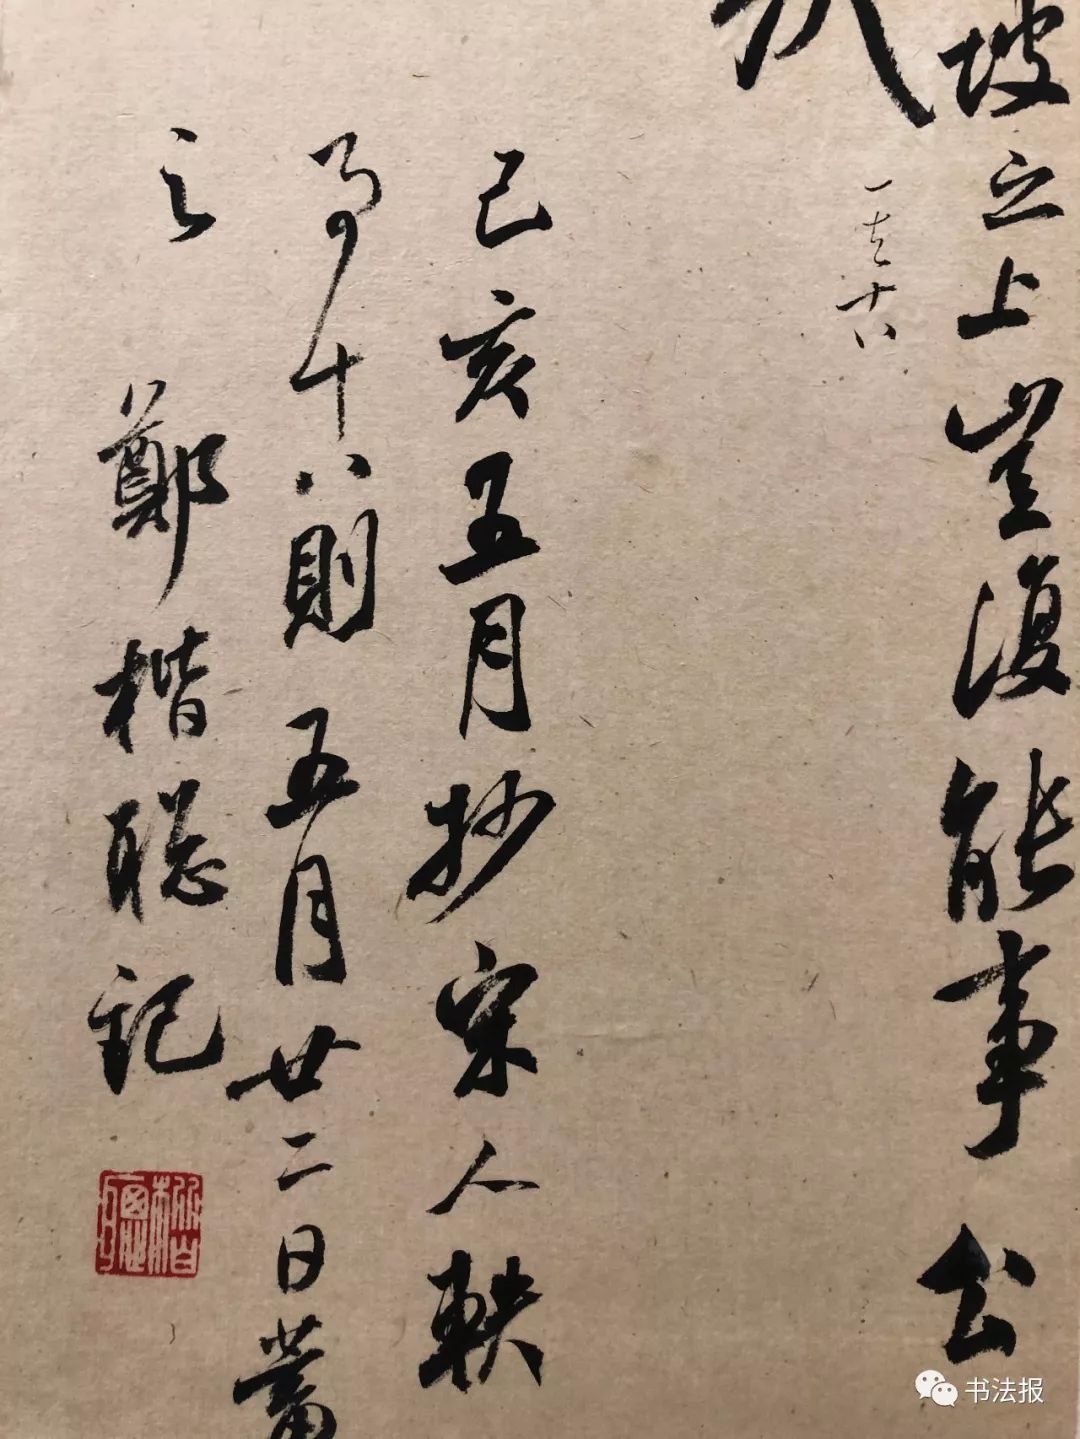 坡之上豈復能事公
一之十八
己亥五月抄宋人軼
事十八則五月廿二日蕾
之鄭楷聪記
楷聰
书法报